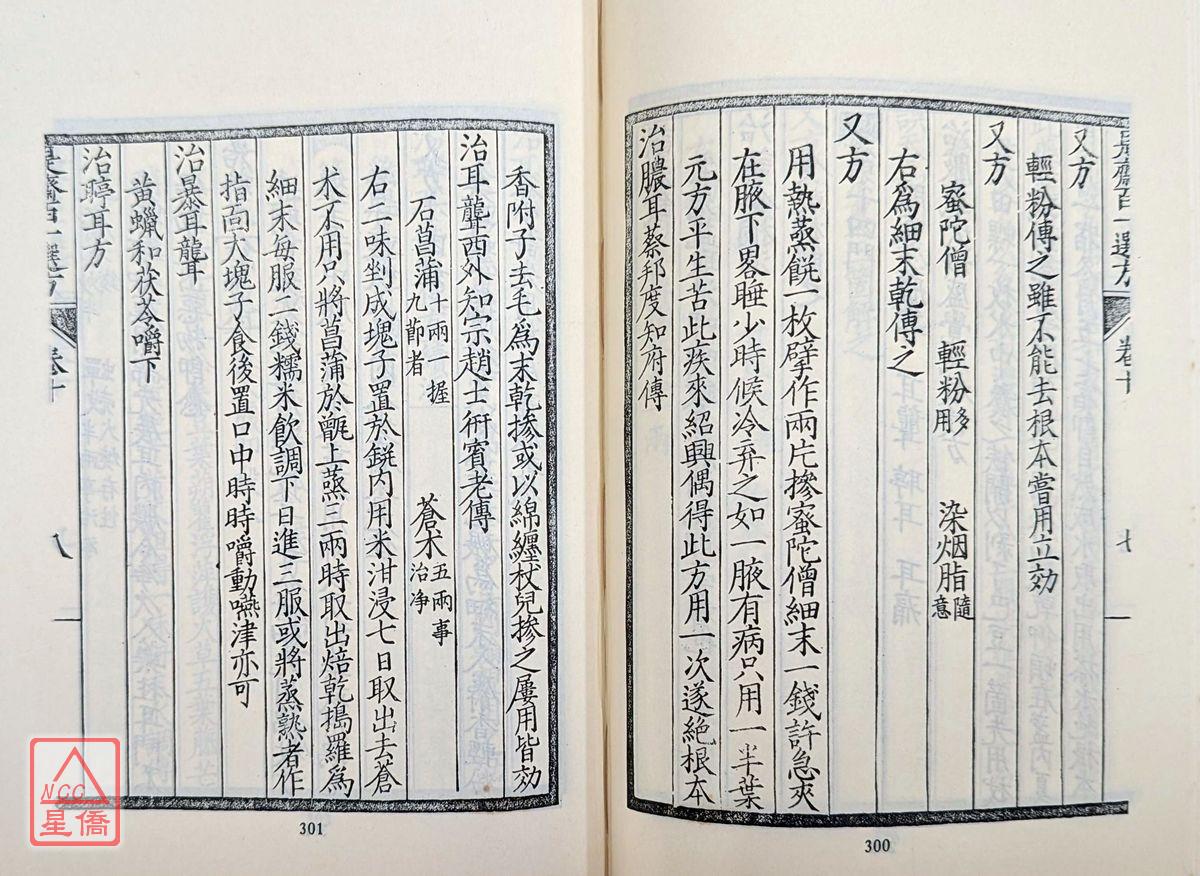 是齋百一選方 卷十 七
又方
輕粉傅之雖不能去根本嘗用立効
又方
蜜陀僧 輕粉多用 染烟脂隨意
右爲細末乾傅之
又方
用熱蒸餅一枚擘作兩片摻蜜陀僧細末一錢許急夾
在腋下畧睡少時候冷弃之如一腋有病只用一半葉
元方平生苦此疾來紹興偶得此方用一次遂絶根本
治膿耳蔡邦度知府傳
300
香附子去毛爲末乾摻或以綿纏杖兒摻之屢用皆効
治耳聾西外知宗趙士衎賓老傳
石菖蒲十兩一握九節者 蒼朮五兩事治净
右二味剉成塊子置於缾内用米泔浸七日取出去蒼
朮不用只將菖蒲於甑上蒸三兩時取出焙乾搗羅爲
細末每服二錢糯米飲調下日進三服或將蒸熟者作
指面大塊子食後置口中時時嚼動嚥津亦可
治暴耳聾
黄蠟和茯苓嚼下
治聤耳方
是齋百一選方 卷十 八
301
NCC
星僑